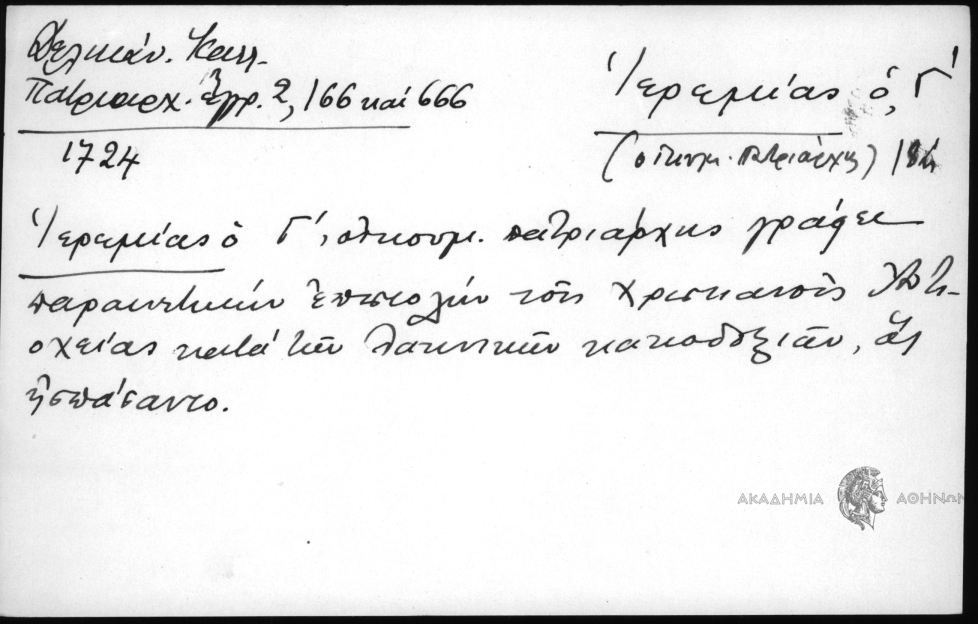 Δελικάν. Καλλ.
Πατριαρχ. ἔγγρ. 2, 166 καί 666
1724
Ἱερεμίας ὁ Γ'
(οἰκουμ. Πατριάρχης)
Ἱερεμίας ὁ Γ', οἰκουμ. πατριάρχης γράφει
παραινετικήν ἐπιστολήν τοῖς Χριστιανοῖς Ἀντι-
οχείας κατά τῶν λατινικῶν κακοδοξιῶν, ἃς
ἠσπάσαντο.
ΑΚΑΔΗΜΙΑ ΑΘΗΝΩΝ